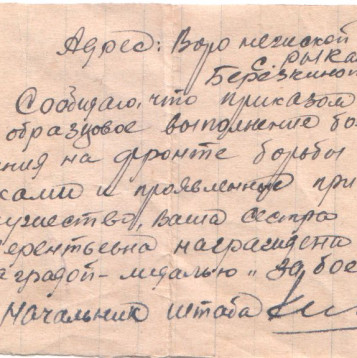 Адрес: Воронежской
с. Рыка
Берёзкиной
Сообщаю, что приказом
образцовое выполнение бо
ния на фронте борьбы
ками и проявленные при
мужество, Ваша сестра
ерентьевна награждена
аградой - медалью „За бое
Начальник штаба